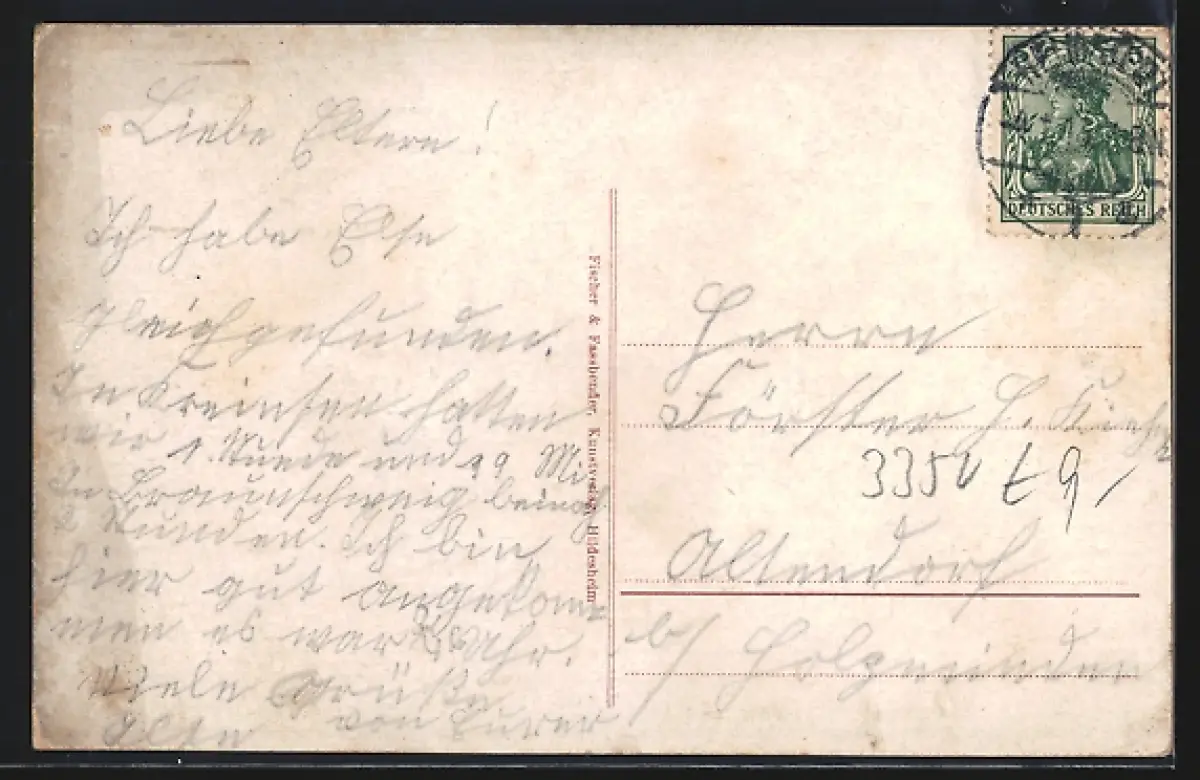 Liebe Eltern!
Ich habe Else
gleich gefunden.
In Kreinsen hatten
wir 1 Stunde und 19 Mi
In Braunschweig beinah
2 Stunden. Ich bin
hier gut angekom
men es war Uhr.
Viele Grüße
von Eurer
Else
Fischer & Fassbender, Kunstverlag, Hildesheim
DEUTSCHES REICH
Herrn
Förster H.
3350
Altendorf
b/ Holzminden